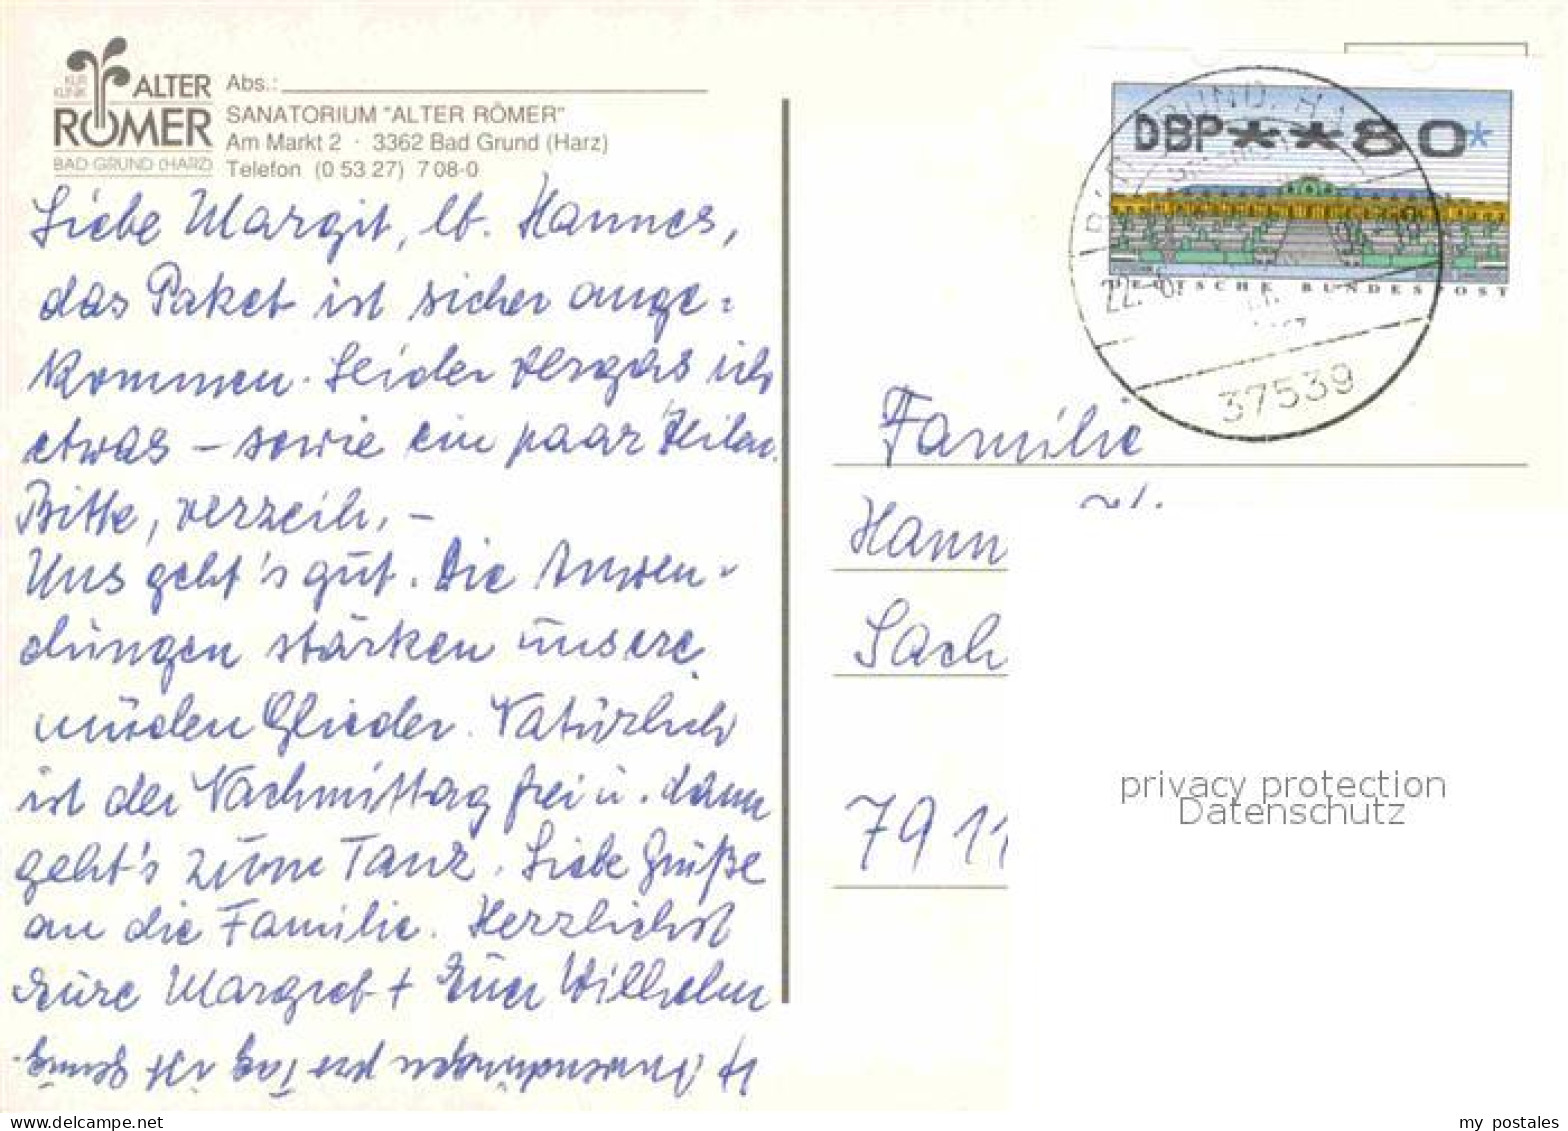 KUR
KLINIK
ALTER
RÖMER
BAD GRUND (HARZ)
Abs.:
SANATORIUM "ALTER RÖMER"
Am Markt 2 · 3362 Bad Grund (Harz)
Telefon (0 53 27) 7 08-0
Liebe Margit, lb. Hannes,
das Paket ist sicher ange=
kommen. Leider vergas ich
etwas – sowie ein paar Zeilen.
Bitte, verzeih, –
Uns geht's gut. Die Anwen-
dungen stärken unsere
müden Glieder. Natürlich
ist der Nachmittag frei u. dann
geht's zum Tanz. Liebe Grüße
an die Familie. Herzlichst
Eure Margret + Euer Wilhelm
4 Anwendungen pro Tag ist genug.
DBP**80*
DEUTSCHE BUNDESPOST
BAD GRUND, HARZ
22.
37539
Familie
Hann
Sach
7911
privacy protection
Datenschutz
my postales